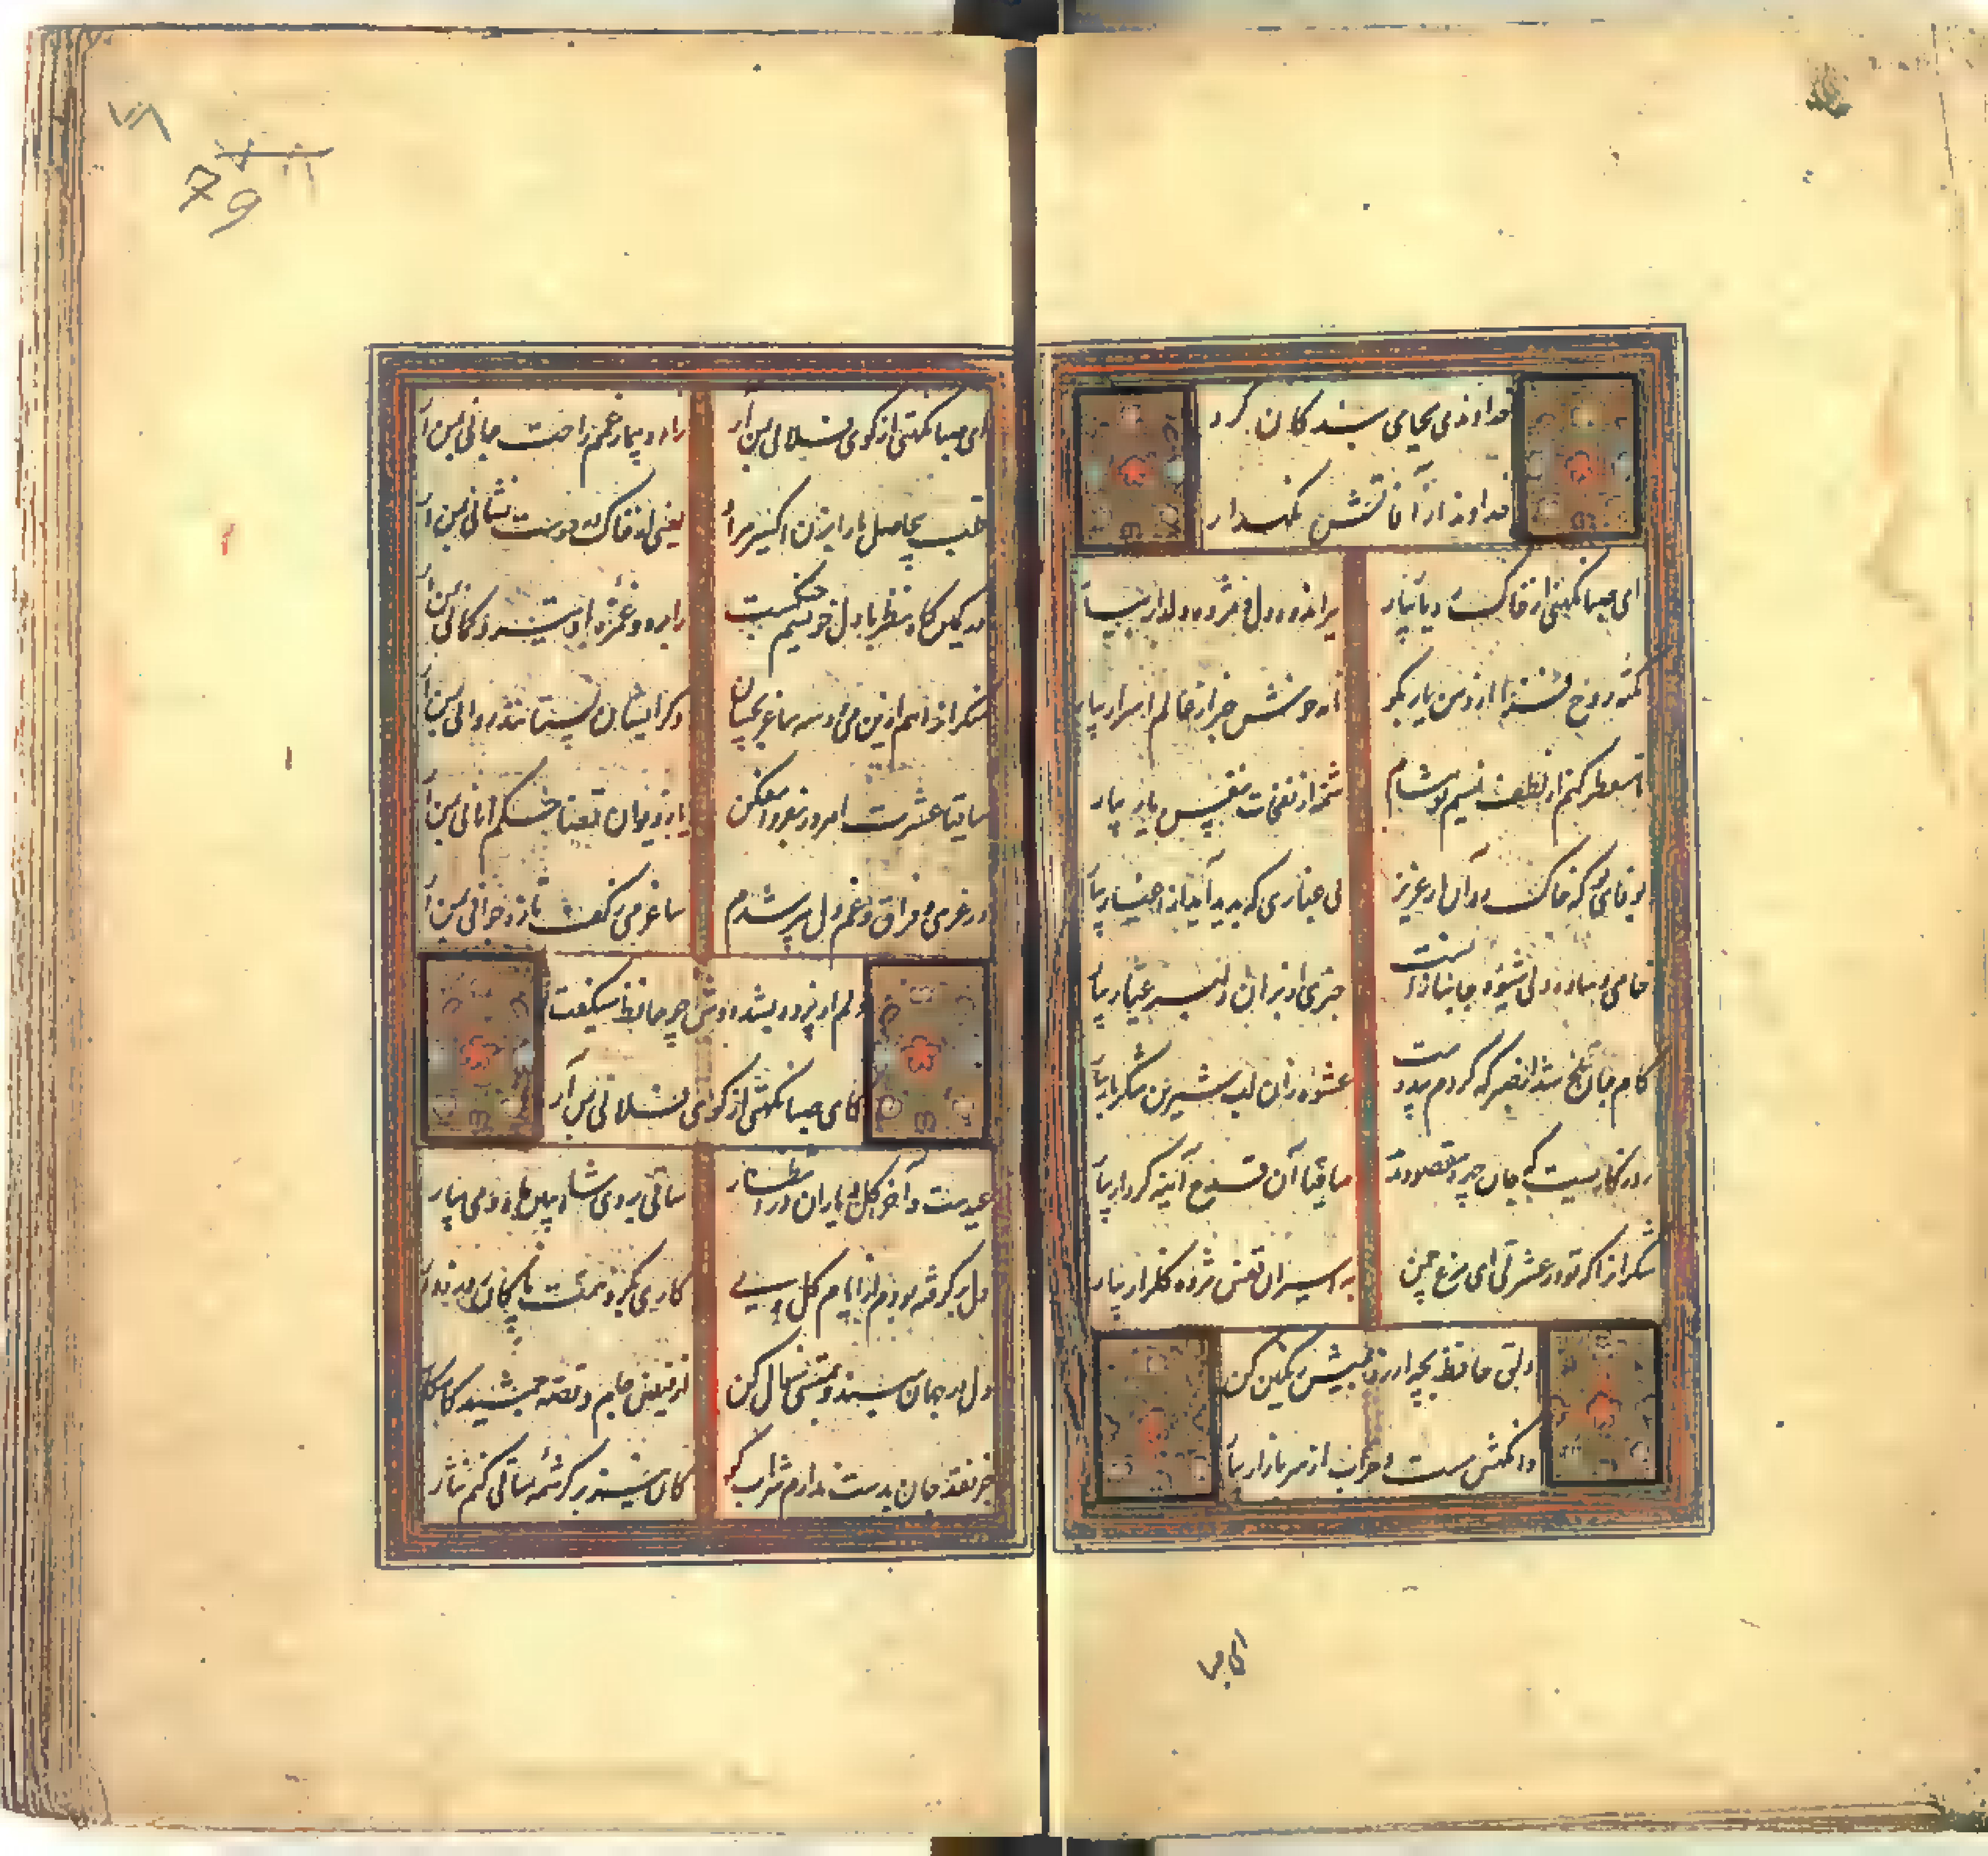 خداوندی بجای بندگان کرد
خداوندا ز آفاتش نگهدار
ای صبا نکهتی از خاک در یار بیار
ببر اندوه دل و مژده دلدار بیار
نکته روح فزا از دهن یار بگو
نامه خوش خبر از عالم اسرار بیار
تا معطر کنم از لطف نسیم تو مشام
شمه از نفحات نفس یار بیار
بوفای تو که خاک ره آن یار عزیز
بی غباری که پدید آید از اغیار بیار
خامی و ساده دلی شیوه جانبازان نیست
خبری از بر آن دلبر عیار بیار
کام جان تلخ شد از صبر که کردم بی دوست
عشوه زان لب شیرین شکربار بیار
روزگاریست که جان چهره مقصود ندید
ساقیا آن قدح آینه کردار بیار
شکر آنرا که تو در عشرتی ای مرغ چمن
به اسیران قفس مژده گلزار بیار
دلق حافظ بچه ارزد بمیش رنگین کن
وانگهش مست و خراب از سر بازار بیار
ای صبا
۷۸
79
ای صبا نکهتی از کوی فلانی بمن آر
زار و بیمار غمم راحت جانی بمن آر
قلب بیحاصل ما را بزن اکسیر مراد
یعنی از خاک در دوست نشانی بمن آر
در کمین گاه نظر با دل خویشم جنگست
ز ابرو و غمزه او تیر و کمانی بمن آر
منکرانرا هم ازین می دو سه ساغر بچشان
وگر ایشان نستانند روانی بمن آر
ساقیا عشرت امروز بفردا مفکن
یا ز دیوان قضا خط امانی بمن آر
در غریبی و فراق و غم دل پیر شدم
ساغر می ز کف تازه جوانی بمن آر
دلم از پرده بشد دوش چو حافظ میگفت
کای صبا نکهتی از کوی فلانی بمن آر
عیدست و آخر گل و یاران در انتظار
ساقی بروی شاه ببین ماه و می بیار
دل برگرفته بودم از ایام گل ولی
کاری بکرد همت پاکان روزه دار
دل در جهان مبند و بمستی سؤال کن
از فیض جام و قصه جمشید کامکار
جز نقد جان بدست ندارم شراب کو
کان نیز بر کرشمه ساقی کنم نثار